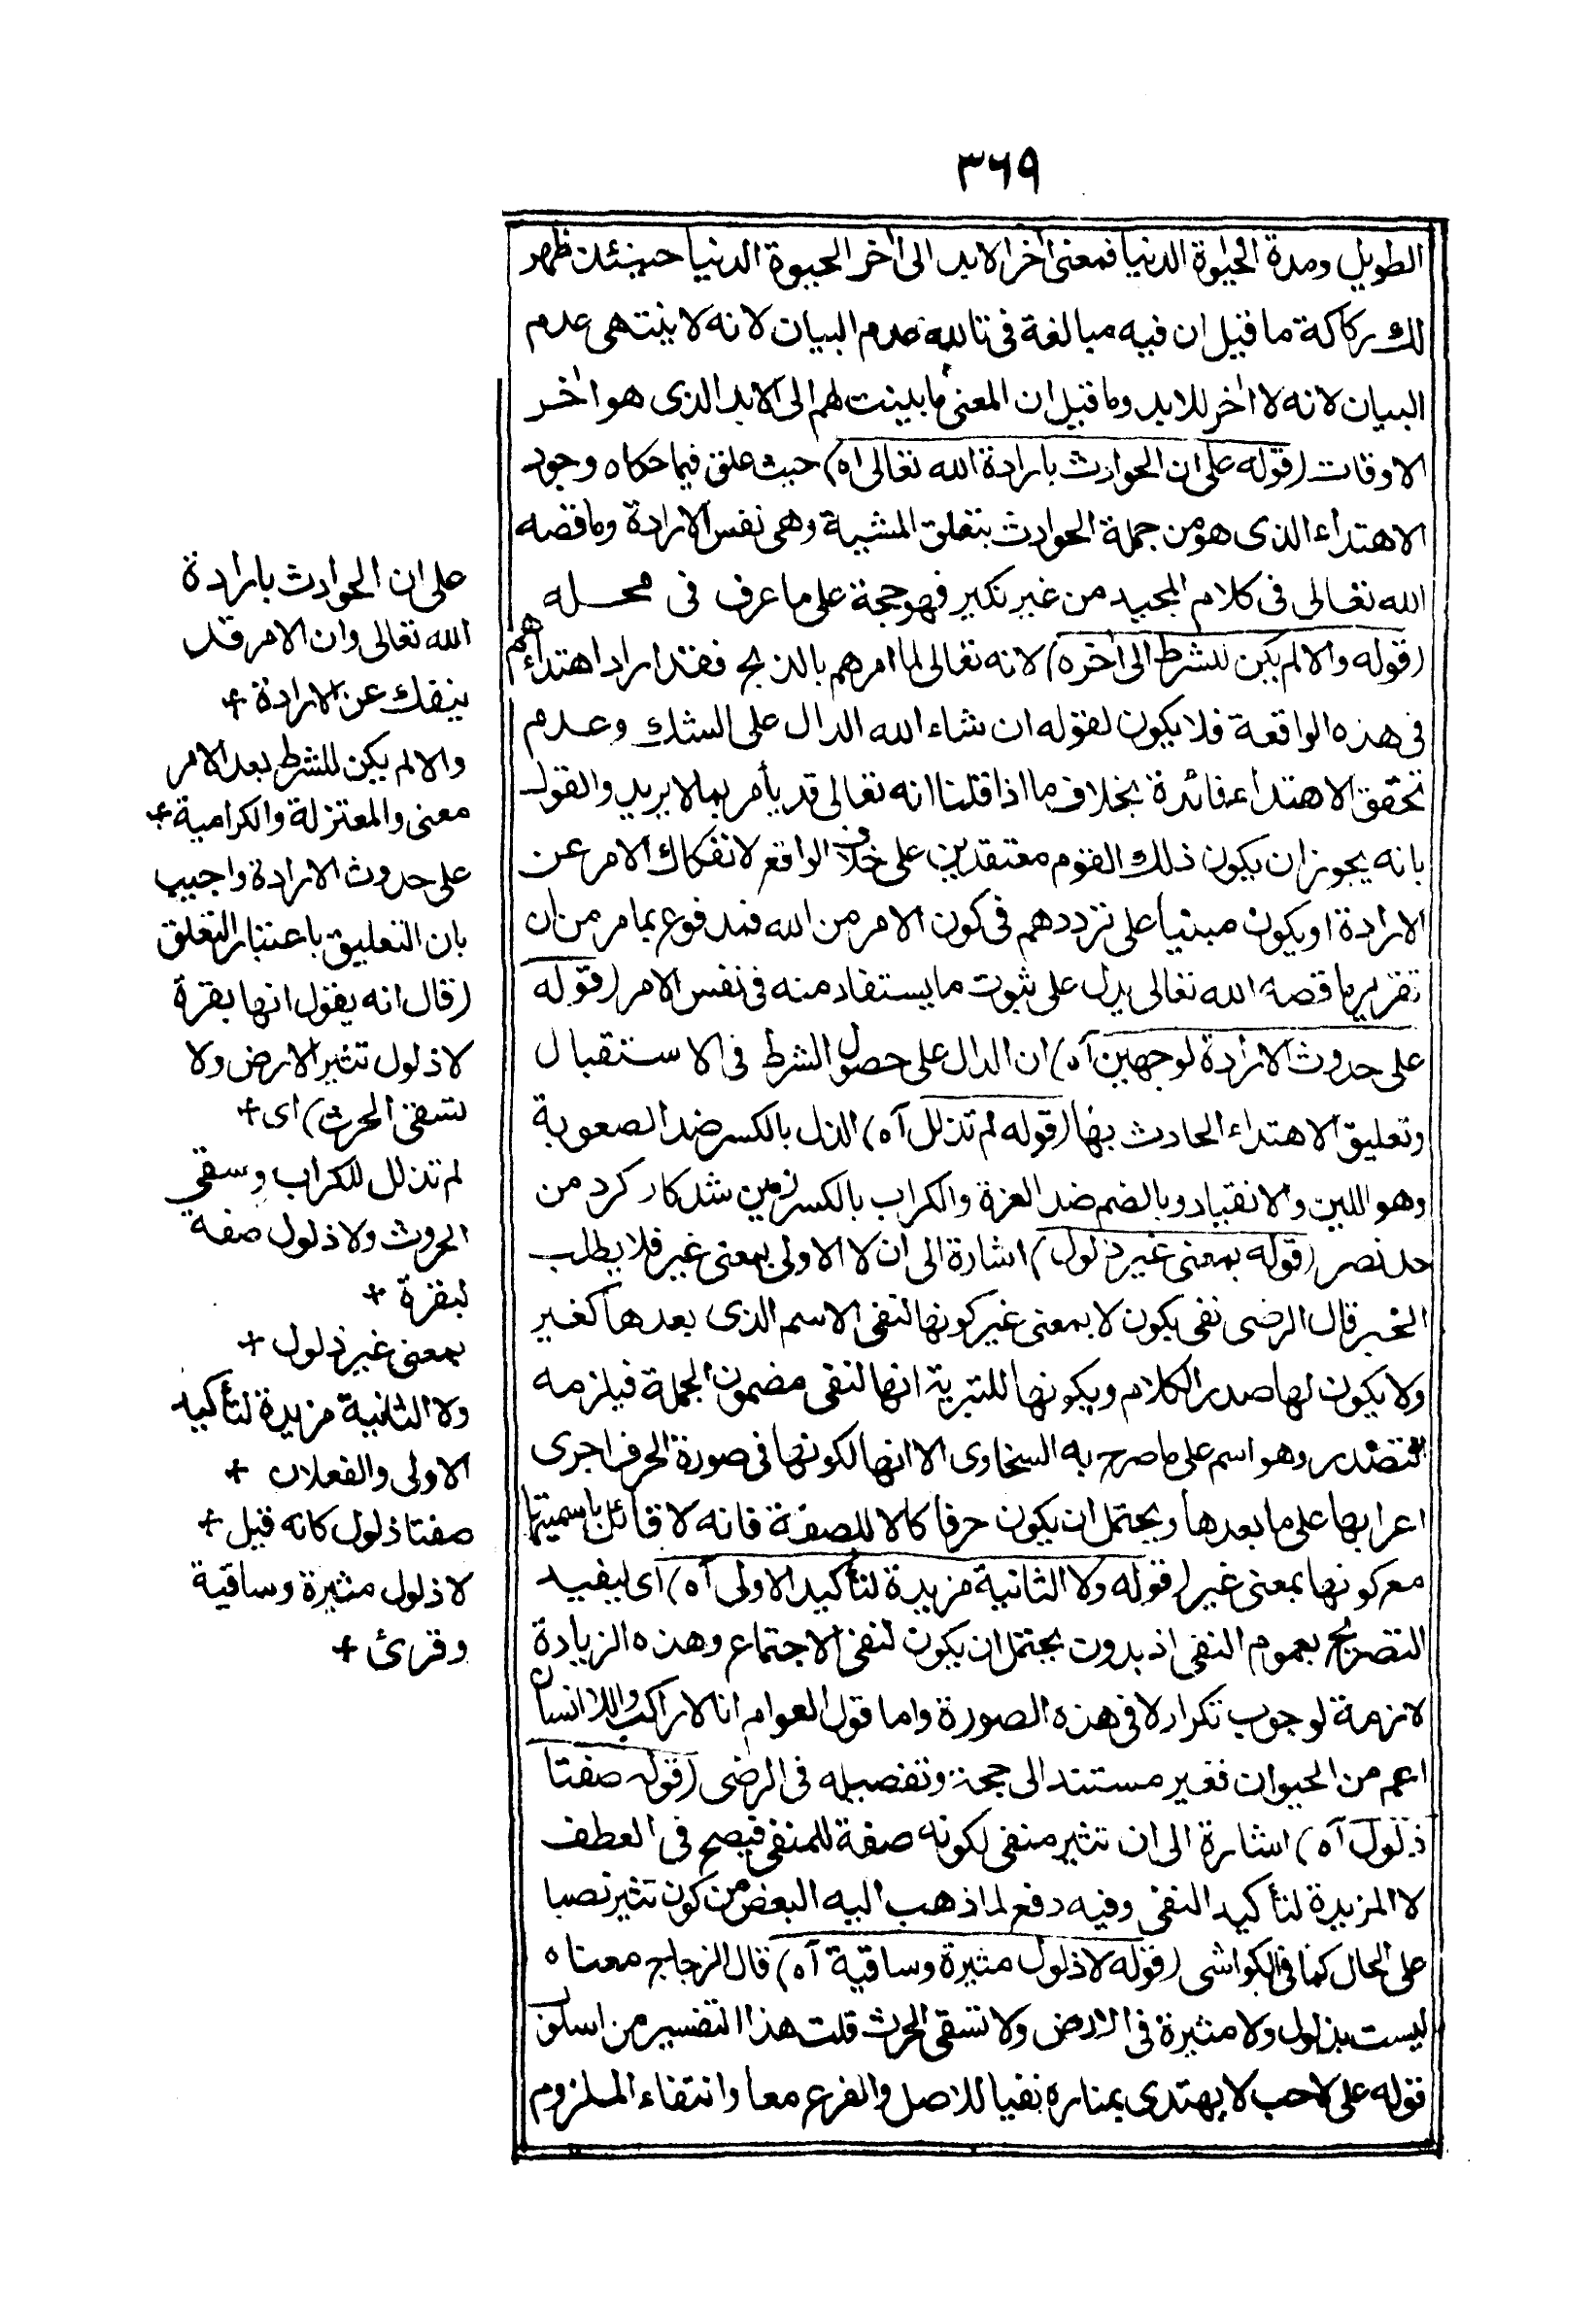 ٣٦٩
الطويل ومدة الحيوة الدنيا فمعنى اخر الابد الى اخر الحيوة الدنيا حينئذ ظهر
لك ركاكة ما قيل ان فيه مبالغة فى تالله عدم البيان لانه لا ينتهى عدم
البيان لانه لا اخر للابد وما قيل ان المعنى ما بينت لهم الى الابد الذى هو اخر
الاوقات (قوله على ان الحوادث بارادة الله تعالى اه) حيث علق فيما حكاه وجود
الاهتداء الذى هو من جملة الحوادث بتعلق المشية وهى نفس الارادة وما قصه
الله تعالى فى كلام المجيد من غير نكير فهو حجة على ما عرف فى محله
(قوله والا لم يكن للشرط الى آخره) لانه تعالى لما امرهم بالذبح فقد اراد اهتداءهم
فى هذه الواقعة فلا يكون لقوله ان شاء الله الدال على الشك وعدم
تحقق الاهتداء فائدة بخلاف ما اذا قلنا انه تعالى قد يأمر بما لا يريد والقول
بانه يجوز ان يكون ذلك القوم معتقدين على خلاف الواقع لانفكاك الامر عن
الارادة او يكون مبنيا على ترددهم فى كون الامر من الله فمدفوع بما مر من ان
تقرير ما قصه الله تعالى يدل على ثبوت ما يستفاد منه فى نفس الامر (قوله
على حدوث الارادة لوجهين آه) ان الدال على حصول الشرط فى الاستقبال
وتعليق الاهتداء الحادث بها (قوله لم تذلل آه) الذل بالكسر ضد الصعوبة
وهو اللين والانقياد وبالضم ضد العزة والكراب بالكسر زمين شد كار كرد من
حد نصر (قوله بمعنى غير ذلول) اشارة الى ان لا الاولى بمعنى غير فلا يطلب
الخبر قال الرضى نفى يكون لا بمعنى غير كونها لنفى الاسم الذى بعدها كغير
ولا يكون لها صدر الكلام ويكونها للتبرية انها لنفى مضمون الجملة فيلزمه
التصدر وهو اسم على ما صرح به السخاوى الا انها لكونها فى صورة الحرف اجرى
اعرابها على ما بعدها ويحتمل ان يكون حرفا كالا للصفة فانه لا قائل باسميتها
مع كونها بمعنى غير (قوله ولا الثانية مزيدة لتأكيد الاولى آه) اى ليفيد
التصريح بعموم النفى اذ بدون يحتمل ان يكون لنفى الاجتماع وهذه الزيادة
لازمة لوجوب تكرار لا فى هذه الصورة واما قول العوام انا لا راكب واللا انسان
اعم من الحيوان فغير مستند الى حجة وتفصيله فى الرضى (قوله صفتا
ذلول آه) اشارة الى ان تثير منفى لكونه صفة للمنفى فيصح فى العطف
لا المزيدة لتأكيد النفى وفيه دفع لما ذهب اليه البعض من كون تثير نصبا
على الحال كما فى الكواشى (قوله لا ذلول مثيرة وساقية آه) قال الزجاج معناه
ليست بذلول ولا مثيرة فى الارض ولا تسقى الحرث قلت هذا التفسير من اسلوب
قوله على لاحب لا يهتدى بمناره نفيا للاصل والفرع معا وانتفاء الملزوم
على ان الحوادث بارادة
الله تعالى وان الامر قد
ينفك عن الارادة +
والا لم يكن للشرط بعد الامر
معنى والمعتزلة والكرامية +
على حدوث الارادة واجيب
بان التعليق باعتبار التعلق
(قال انه يقول انها بقرة
لا ذلول تثير الارض ولا
تسقى الحرث) اى +
لم تذلل للكراب وسقى
الحروث ولا ذلول صفة
لبقرة +
بمعنى غير ذلول +
ولا الثانية مزيدة لتأكيد
الاولى والفعلان +
صفتا ذلول كانه قيل +
لا ذلول مثيرة وساقية
وقرئ +